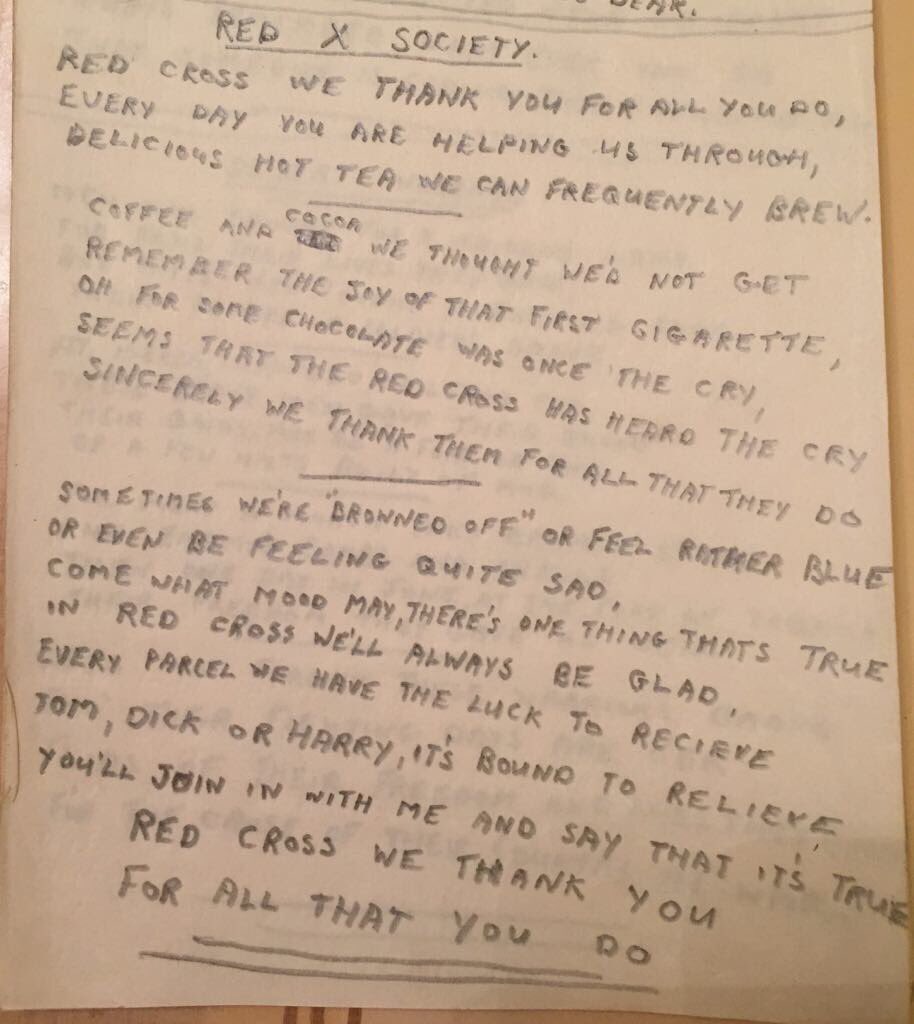 DEAR.
RED X SOCIETY.
RED CROSS WE THANK YOU FOR ALL YOU DO,
EVERY DAY YOU ARE HELPING US THROUGH,
DELICIOUS HOT TEA WE CAN FREQUENTLY BREW.
COFFEE AND COCOA WE THOUGHT WE'D NOT GET
REMEMBER THE JOY OF THAT FIRST GIGARETTE,
OH FOR SOME CHOCOLATE WAS ONCE THE CRY,
SEEMS THAT THE RED CROSS HAS HEARD THE CRY
SINCERELY WE THANK THEM FOR ALL THAT THEY DO
SOMETIMES WE'RE "BROWNED OFF" OR FEEL RATHER BLUE
OR EVEN BE FEELING QUITE SAD,
COME WHAT MOOD MAY, THERE'S ONE THING THATS TRUE
IN RED CROSS WE'LL ALWAYS BE GLAD,
EVERY PARCEL WE HAVE THE LUCK TO RECIEVE
TOM, DICK OR HARRY, IT'S BOUND TO RELIEVE
YOU'LL JOIN IN WITH ME AND SAY THAT IT'S TRUE
RED CROSS WE THANK YOU
FOR ALL THAT YOU DO